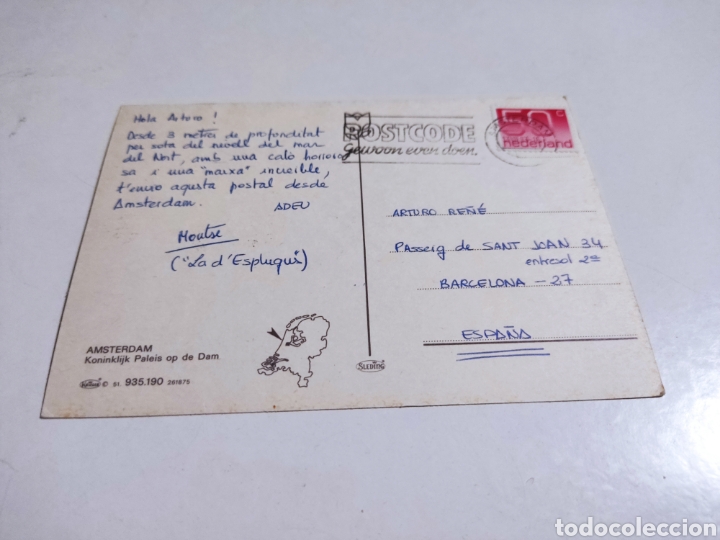 Hola Arturo !
Desde 3 metres de profonditat
per sota del nivell del mar
del Nort, amb una caló horroro
sa i una "marxa" increible,
t'envio aqusta postal desde
Amsterdam. ADEU
Montse
("La d'Esplugus")
AMSTERDAM
Koninklijk Paleis op de Dam
© 51. 935.190 281675
POSTCODE
gewoon even doen.
50 c
nederland
ARTURO REÑÉ
PASSEIG de SANT JOAN 34
entresol 2ª
BARCELONA - 27
ESPAÑA
SLEDING
todocoleccion
todocoleccion.net